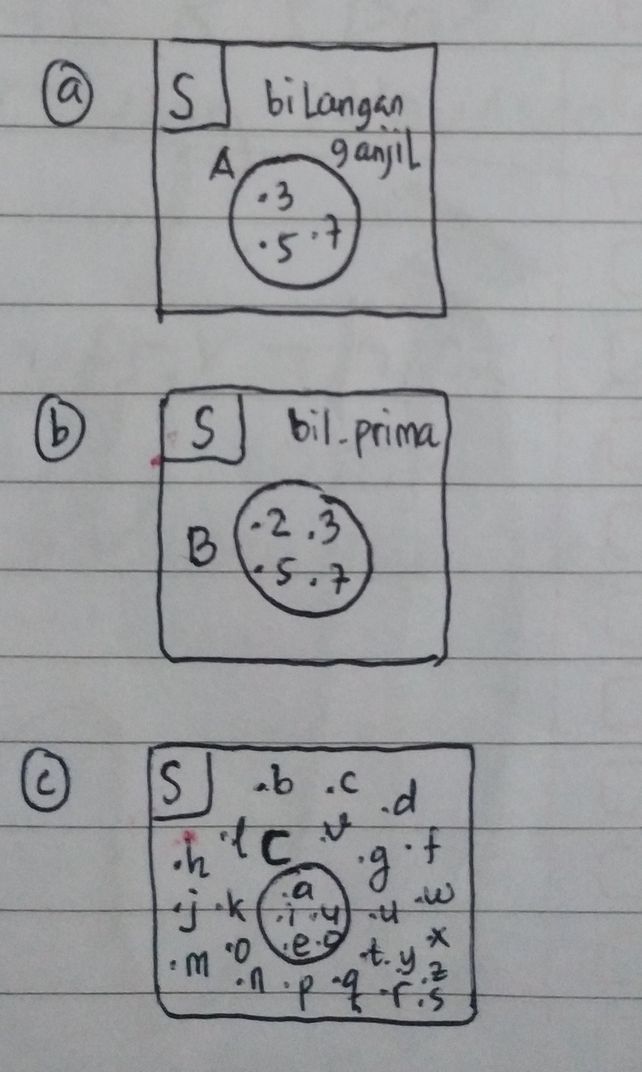 a
S bilangan
ganjil
A
.3
.5 .7
b
S bil. prima
B
.2 .3
.5 .7
c
S .b .c .d
.h .l C .v .g .f
.a
.j .k .i .u .u .w
.m .o .e .o .t .y x
.n .p .q .r .s .z